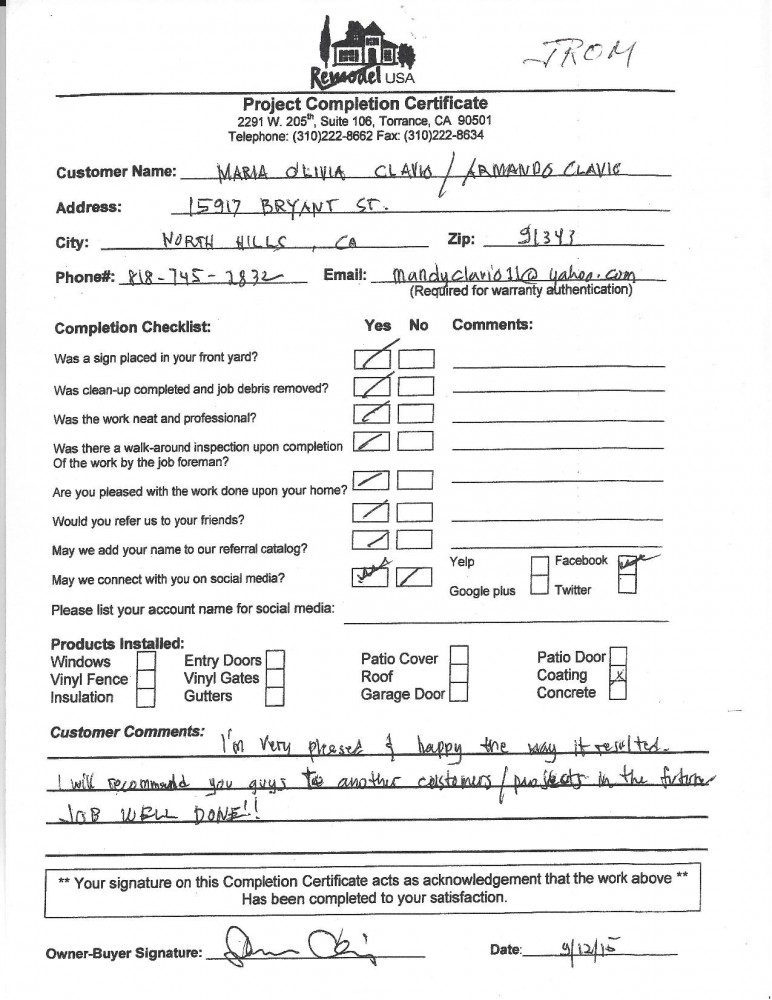 Remodel USA
JROM
Project Completion Certificate
2291 W. 205th, Suite 106, Torrance, CA 90501
Telephone: (310)222-8662 Fax: (310)222-8634
Customer Name: MARIA OLIVIA CLAVIO / ARMANDO CLAVIO
Address: 15917 BRYANT ST.
City: NORTH HILLS, CA Zip: 91343
Phone#: 818-745-2832 Email: mandyclavio11@yahoo.com
(Required for warranty authentication)
Completion Checklist: Yes No Comments:
Was a sign placed in your front yard?
Was clean-up completed and job debris removed?
Was the work neat and professional?
Was there a walk-around inspection upon completion
Of the work by the job foreman?
Are you pleased with the work done upon your home?
Would you refer us to your friends?
May we add your name to our referral catalog?
Yelp Facebook
May we connect with you on social media?
Google plus Twitter
Please list your account name for social media:
Products Installed:
Windows Entry Doors Patio Cover Patio Door
Vinyl Fence Vinyl Gates Roof Coating X
Insulation Gutters Garage Door Concrete
Customer Comments: I'm very pleased & happy the way it resulted.
I will recommend you guys to another costomers / projects in the future
JOB WELL DONE!!
** Your signature on this Completion Certificate acts as acknowledgement that the work above **
Has been completed to your satisfaction.
Owner-Buyer Signature: Date: 9/12/15